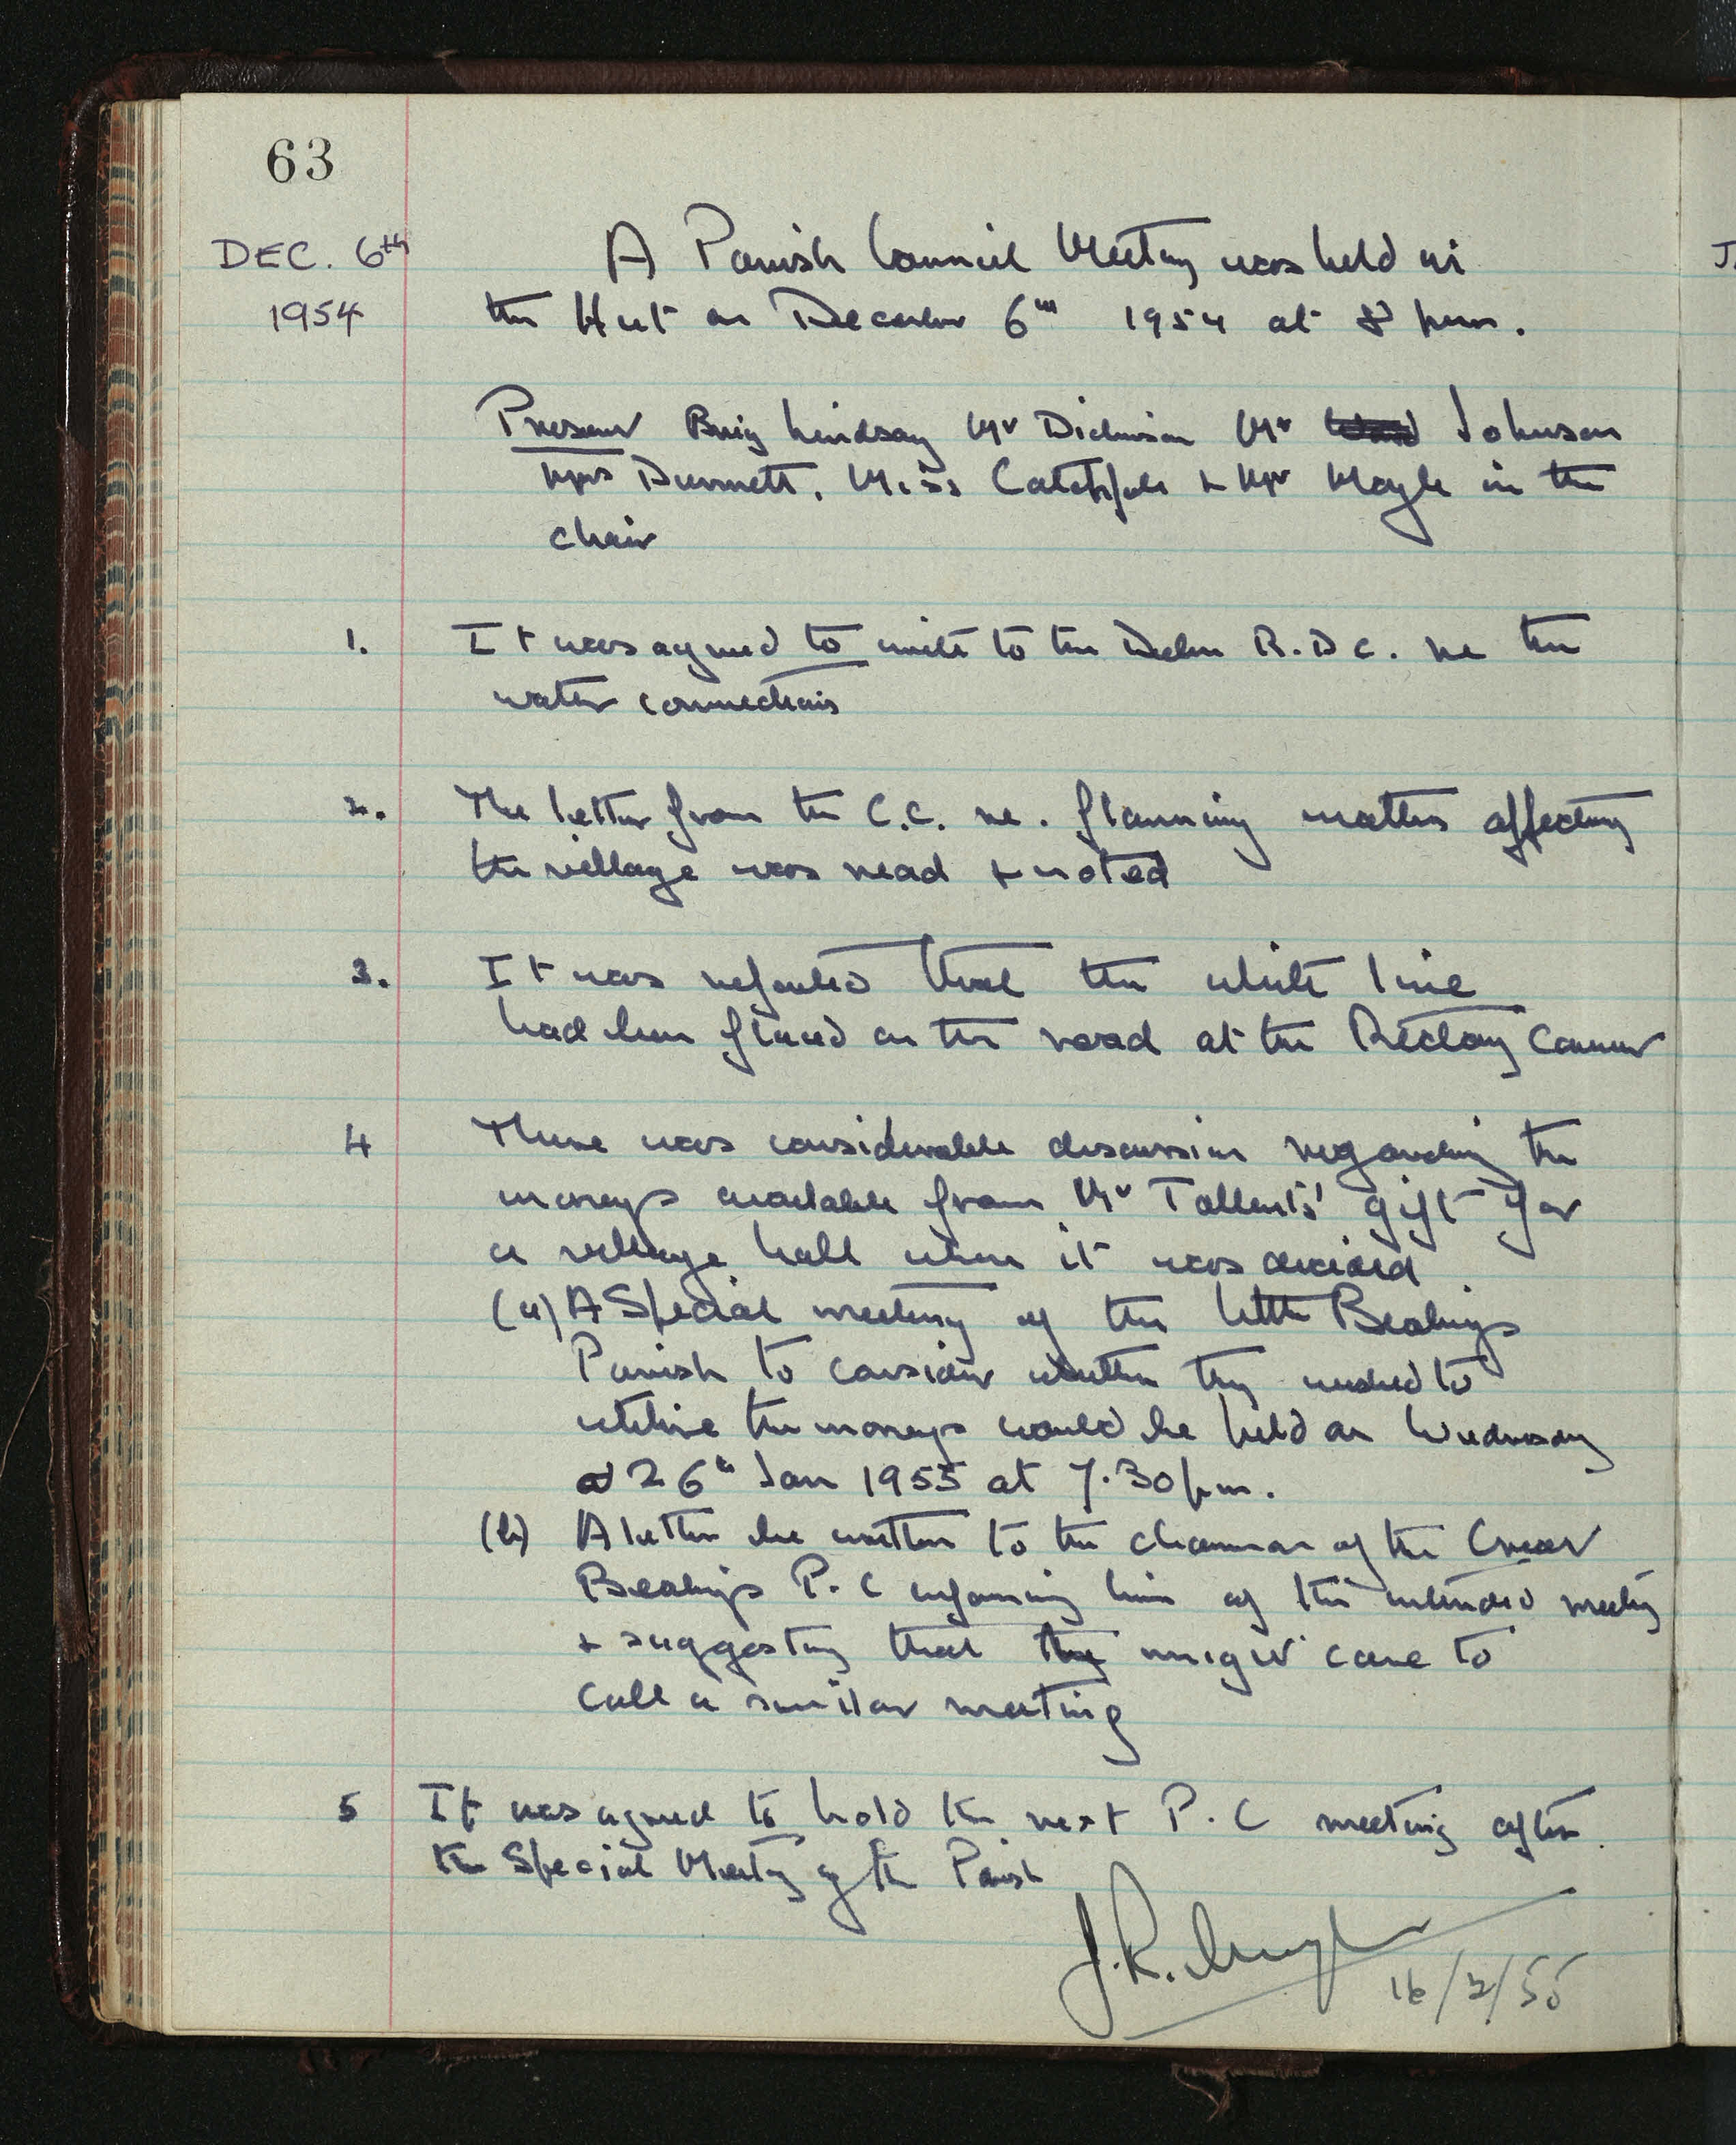 63
DEC. 6th
1954
A Parish Council Meeting was held in
the Hut on December 6th 1954 at 8 p.m.
Present Brig Lindsay Mr Dickinson Mr Johnson
Mrs Dunnett. Miss Catchpole + Mr Mayle in the
chair
1. It was agreed to write to the Deben R.D.C. re the
water connections
2. The letter from the C.C. re. planning matters affecting
the village was read + noted
3. It was reported that the white line
had been placed on the road at the Rectory Corner
4 There was considerable discussion regarding the
moneys available from Mr Tallents' gift for
a village hall when it was decided
(a) A Special meeting of the Little Bealings
Parish to consider whether they wished to
utilise the moneys would be held on Wednesday
26th Jan 1955 at 7.30 p.m.
(b) A letter be written to the chairman of the Great
Bealings P.C informing him of the intended meeting
+ suggesting that they might care to
call a similar meeting
5 It was agreed to hold the next P.C meeting after
the Special Meeting of the Parish
J.R.
16/2/55
J